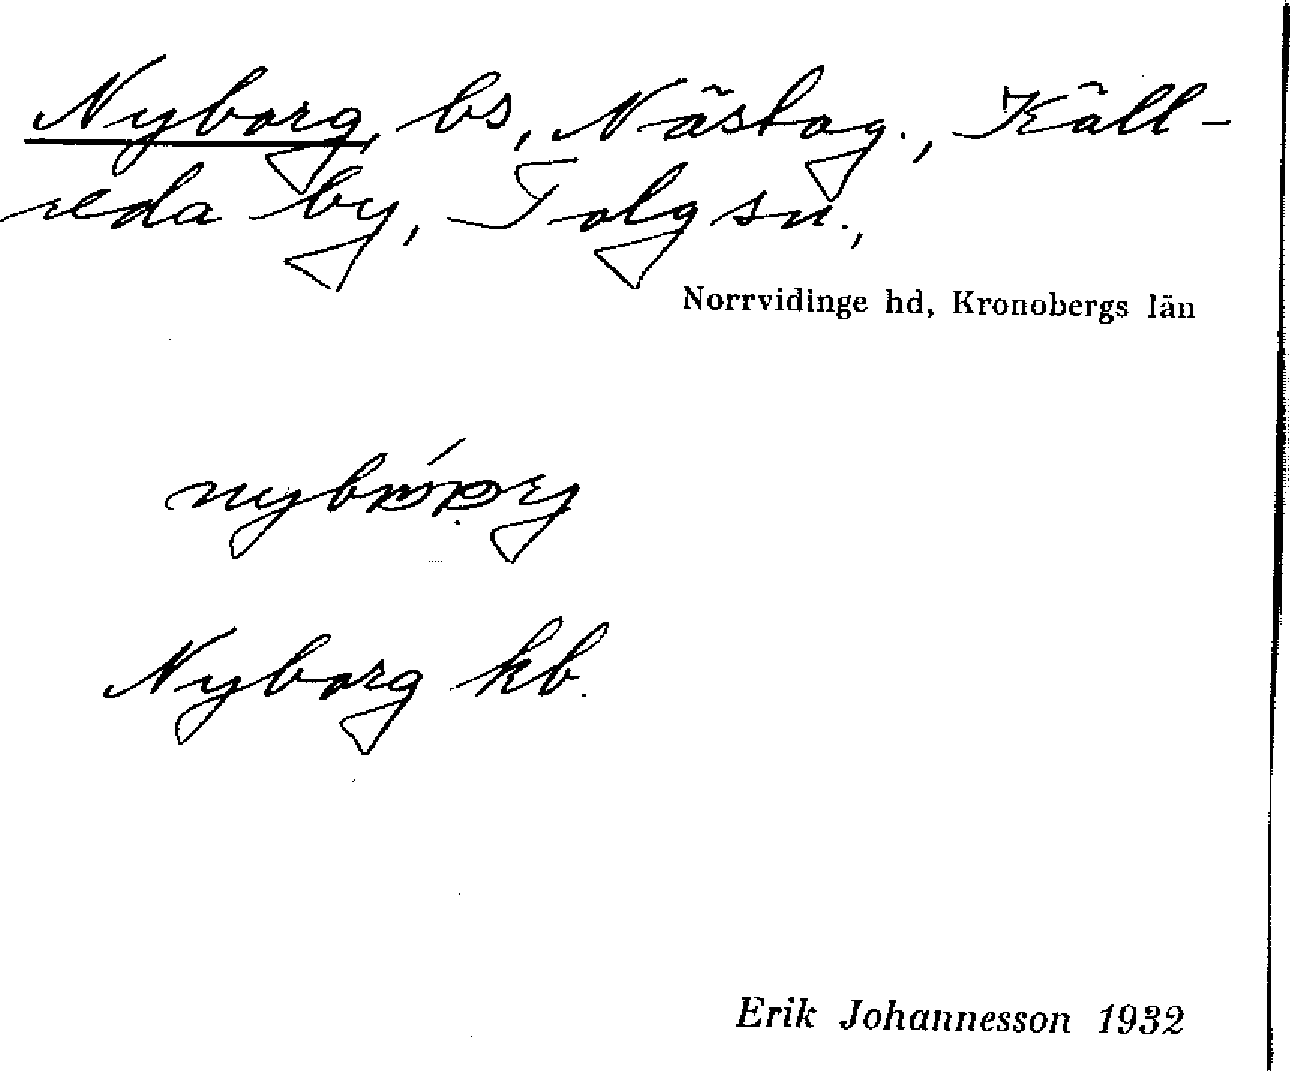 Nyborg, bs, Nästag., Käll-
reda by, Tolg sn.,
Norrvidinge hd, Kronobergs län
Nyborg kb.
Erik Johannesson 1932